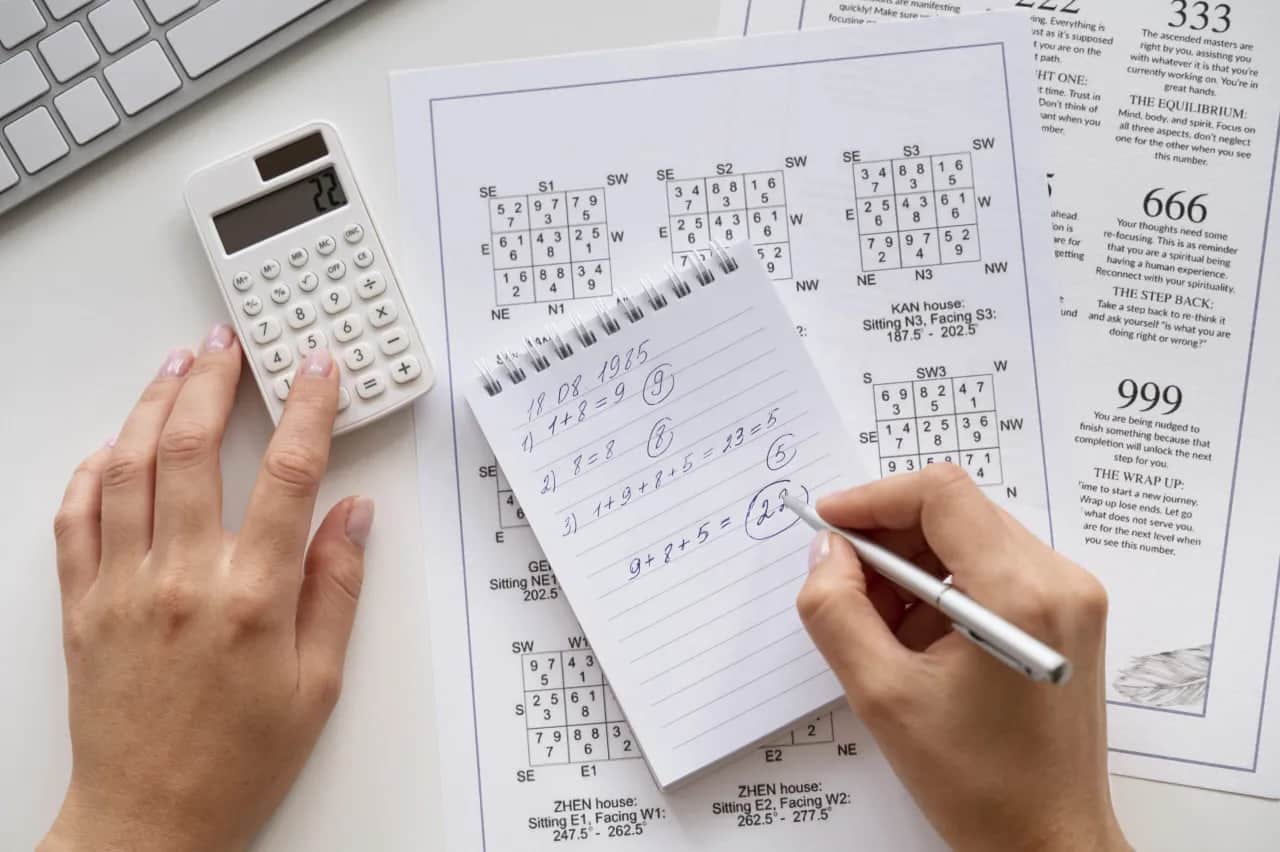 22
M+ M- MR MC
OFF CE
7 8 9 ÷
4 5 6 ×
1 3 −
= +
SE S1 SW
5 2 9 7 7 9
7 3 5
E 6 1 4 3 2 5 W
6 8 1
1 6 8 8 3 4
2 4 9
NE N1
SE S2 SW
3 4 8 8 1 6
7 3 5
E 2 5 4 3 6 1 W
6 8 6
5 2
9
NW
SE S3 SW
3 4 8 8 1 6
7 3 5
E 2 5 4 3 6 1 W
6 8 6
7 9 9 7 5 2
2 4 9
NE N3 NW
KAN house:
Sitting N3, Facing S3:
187.5° - 202.5°
S SW3 W
6 9 8 2 4 7
3 5 1
SE 1 4 2 5 3 6 NW
7 8 9
9 3 7 1
4
N
18 08 1985
1) 1+8=9 9
2) 8=8 8
3) 1+9+8+5=23=5
5
9+8+5= 22
SE
4
6
E
Sitting NE1
202.5°
SW W1
9 7 4 3
5 1
S 2 5 6 1
3 8
7 9 8 8 3
7 6 2
SE E1
ZHEN house:
Sitting E1, Facing W1:
247.5° - 262.5°
2
E2 NE
ZHEN house:
Sitting E2, Facing W2:
262.5° - 277.5°
are manifesting
quickly! Make sure
focusing
222
Everything is
as it's supposed
you are on the
path.
time. Trust in
Don't think of
when you
333
The ascended masters are
right by you, assisting you
with whatever it is that you're
currently working on. You're in
great hands.
THE EQUILIBRIUM:
Mind, body, and spirit. Focus on
all three aspects, don't neglect
one for the other when you see
this number.
ahead.
is
are for
getting
666
Your thoughts need some
re-focusing. This is as reminder
that you are a spiritual being
having a human experience.
Reconnect with your spirituality.
THE STEP BACK:
Take a step back to re-think it
and ask yourself "is what you are
doing right or wrong?"
999
You are being nudged to
finish something because that
completion will unlock the next
step for you.
THE WRAP UP:
Time to start a new journey.
Wrap up lose ends. Let go
what does not serve you.
are for the next level when
you see this number.